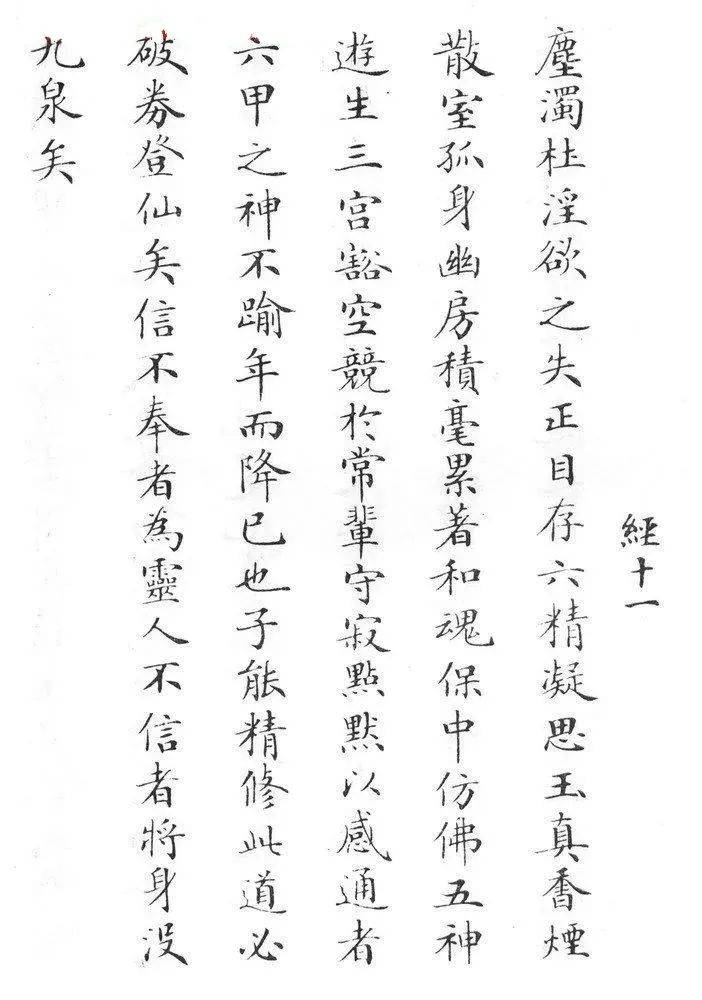 經十一
塵濁杜淫欲之失正目存六精凝思玉真香煙
散室孤身幽房積毫累著和魂保中仿佛五神
遊生三宮豁空競於常輩守寂默默以感通者
六甲之神不踰年而降已也子能精修此道必
破券登仙矣信不奉者為靈人不信者將身没
九泉矣